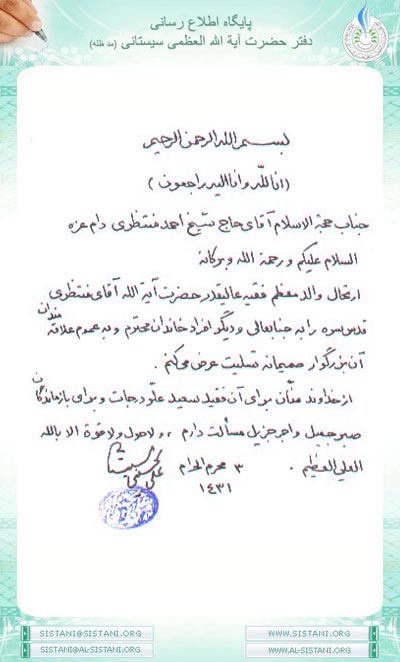 پایگاه اطلاع رسانی
دفتر حضرت آیة الله العظمی سیستانی (مد ظله)
بسم الله الرحمن الرحیم
(انا لله وانا الیه راجعون)
جناب حجة الاسلام آقای حاج شیخ احمد منتظری دام عزه
السلام علیکم ورحمة الله وبرکاته
ارتحال والد معظم فقیه عالیقدر حضرت آیة الله آقای منتظری
قدس سره را به جنابعالی و دیگر افراد خاندان محترم و به عموم علاقه مندان
آن بزرگوار صمیمانه تسلیت عرض میکنم .
از خداوند منّان برای آن فقید سعید علوّ درجات و برای بازماندگان
صبر جمیل و اجر جزیل مسألت دارم ، ولا حول ولا قوة الا بالله
العلی العظیم .
۳ محرم الحرام
۱۴۳۱
علی الحسینی السیستانی
SISTANI@SISTANI.ORG
WWW.SISTANI.ORG
SISTANI@AL-SISTANI.ORG
WWW.AL-SISTANI.ORG